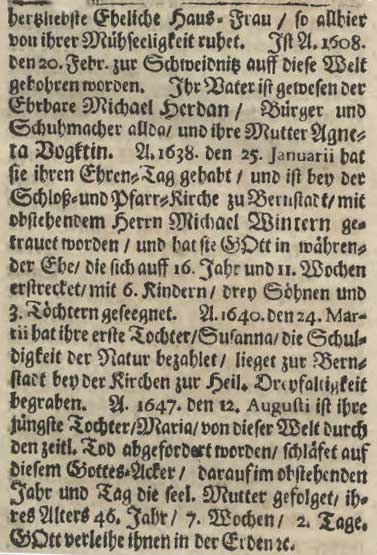 hertzliebste Eheliche Haus-Frau / so allhier
von ihrer Mühseeligkeit ruhet. Ist A. 1608.
den 20. Febr. zur Schweidnitz auff diese Welt
gebohren worden. Ihr Vater ist gewesen der
Ehrbare Michael Herdan / Bürger und
Schuhmacher allda / und ihre Mutter Agne-
ta Vogktin. A. 1638. den 25. Januarii hat
sie ihren Ehren-Tag gehabt / und ist bey der
Schloß- und Pfarr-Kirche zu Bernstadt / mit
obstehendem Herrn Michael Wintern ge-
trauet worden / und hat sie GOtt in währen-
der Ehe / die sich auff 16. Jahr und 11. Wochen
erstrecket / mit 6. Kindern / drey Söhnen und
3. Töchtern geseegnet. A. 1640. den 24. Mar-
tii hat ihre erste Tochter / Susanna / die Schul-
digkeit der Natur bezahlet / lieget zur Bern-
stadt bey der Kirchen zur Heil. Dreyfaltigkeit
begraben. A. 1647. den 12. Augusti ist ihre
jüngste Tochter / Maria / von dieser Welt durch
den zeitl. Tod abgefordert worden / schläfet auf
diesem Gottes-Acker / darauf im obstehenden
Jahr und Tag die seel. Mutter gefolget / ih-
res Alters 46. Jahr / 7. Wochen / 2. Tage.
GOtt verleihe ihnen in der Erden ꝛc.